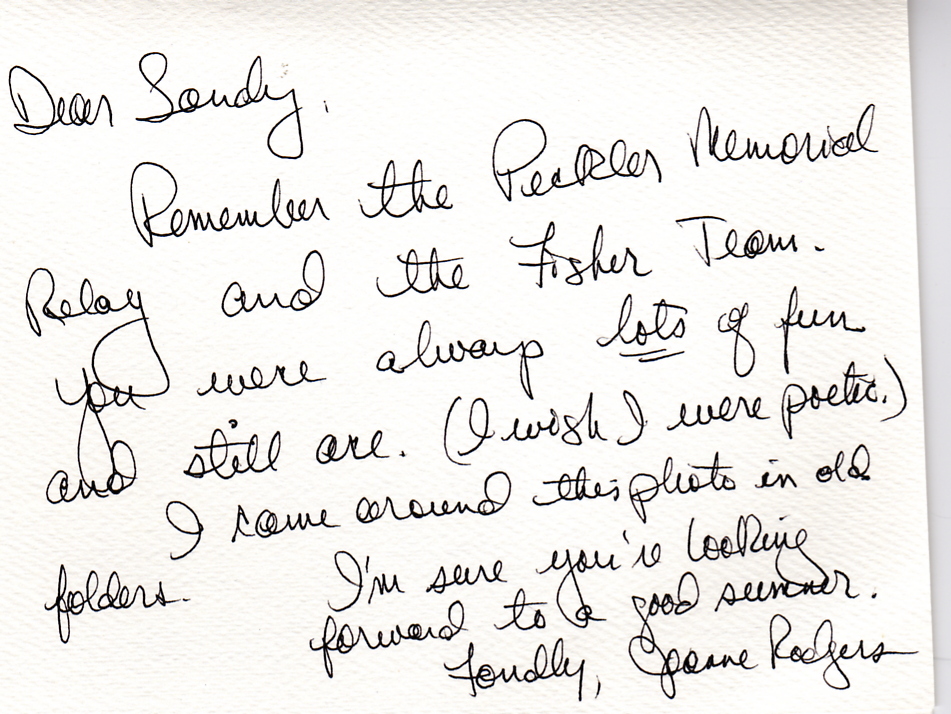 Dear Sandy,
Remember the Peckler Memorial
Relay and the Fisher Team.
You were always lots of fun
and still are. (I wish I were poetic.)
I came around this photo in old
folders.
I'm sure you're looking
forward to a good summer.
Fondly, Joanne Rodgers